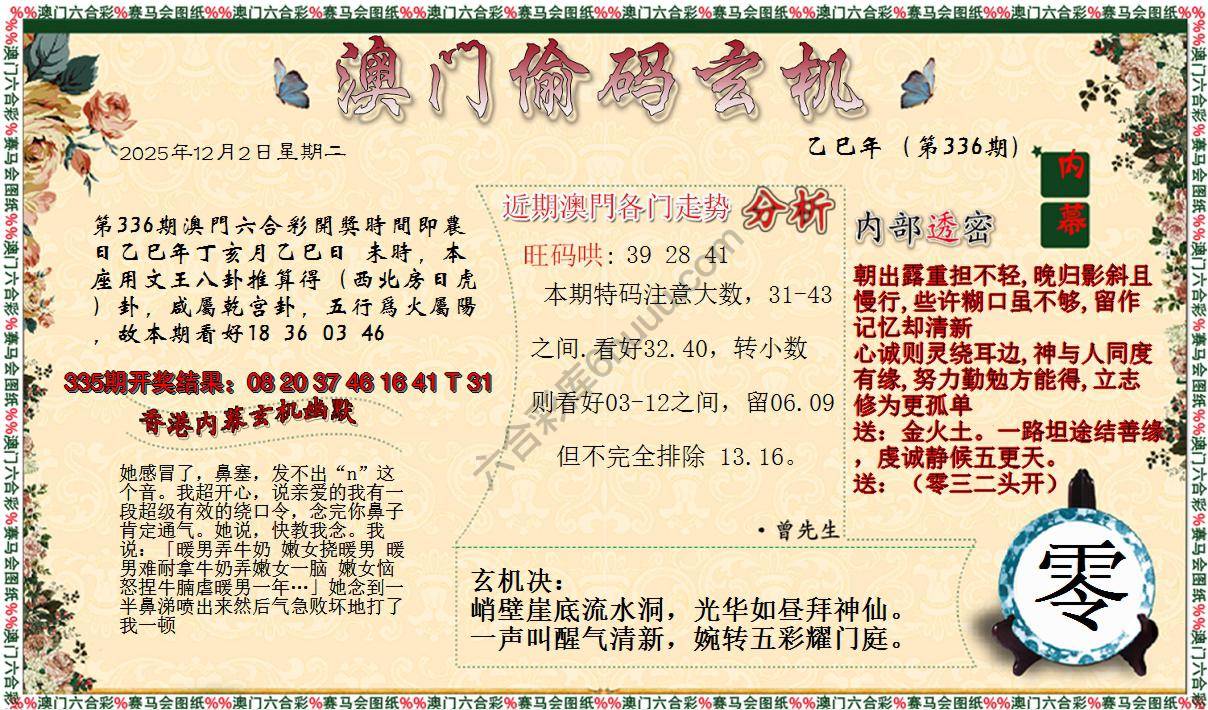 %%澳门六合彩%赛马会图纸%%澳门六合彩%赛马会图纸%%澳门六合彩%赛马会图纸%%澳门六合彩%赛马会图纸%%澳门六合彩%赛马会图纸%%澳门六合彩%赛马会图纸%%
澳门偷码玄机
2025年12月2日星期二
乙巳年（第336期）
内幕
第336期澳門六合彩開獎時間即農
日乙巳年丁亥月乙巳日 未時，本
座用文王八卦推算得（西北房日虎
）卦，咸屬乾宫卦，五行爲火屬陽
，故本期看好18 36 03 46
335期开奖结果：08 20 37 46 16 41 T 31
香港内幕玄机幽默
她感冒了，鼻塞，发不出“n”这
个音。我超开心，说亲爱的我有一
段超级有效的绕口令，念完你鼻子
肯定通气。她说，快教我念。我
说：「暖男弄牛奶 嫩女挠暖男 暖
男难耐拿牛奶弄嫩女一脑 嫩女恼
怒捏牛腩虐暖男一年…」她念到一
半鼻涕喷出来然后气急败坏地打了
我一顿
近期澳門各门走势 分析
旺码哄: 39 28 41
本期特码注意大数，31-43
之间.看好32.40，转小数
则看好03-12之间，留06.09
但不完全排除 13.16。
·曾先生
内部透密
朝出露重担不轻,晚归影斜且
慢行,些许糊口虽不够,留作
记忆却清新
心诚则灵绕耳边,神与人同度
有缘,努力勤勉方能得,立志
修为更孤单
送：金火土。一路坦途结善缘
，虔诚静候五更天。
送：（零三二头开）
玄机决：
峭壁崖底流水洞，光华如昼拜神仙。
一声叫醒气清新，婉转五彩耀门庭。
零
六合彩库6huuu.com
%%澳门六合彩%赛马会图纸%%澳门六合彩%赛马会图纸%%澳门六合彩%赛马会图纸%%澳门六合彩%赛马会图纸%%澳门六合彩%赛马会图纸%%澳门六合彩%赛马会图纸%%